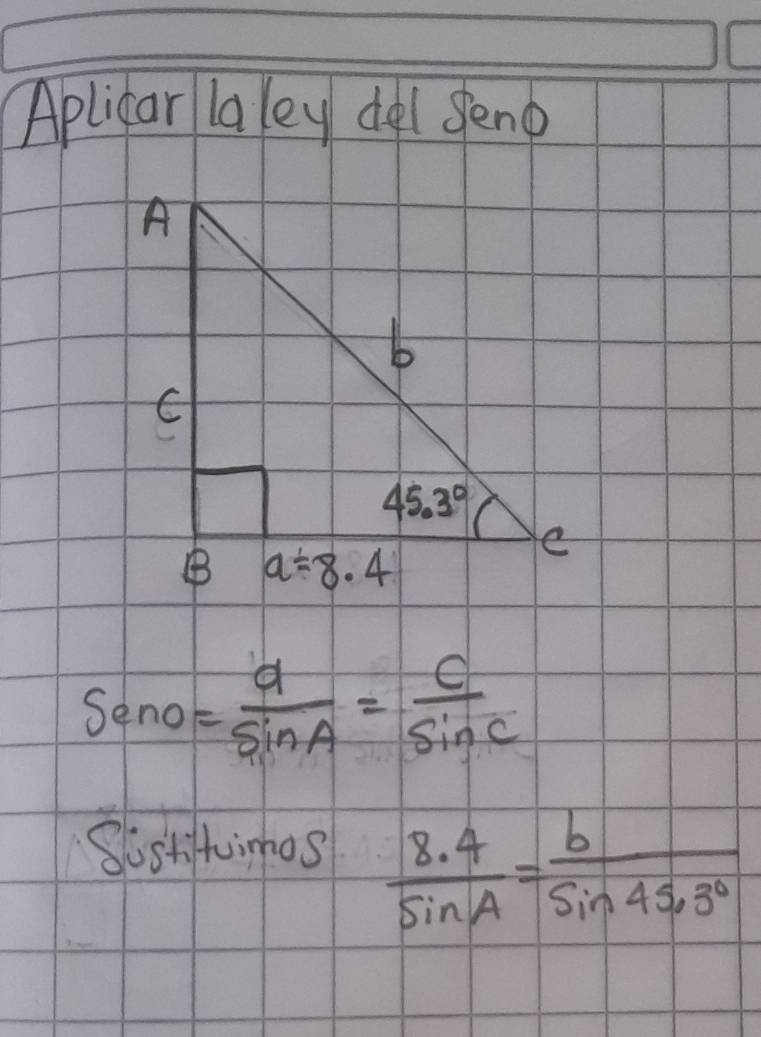 Aplicar la ley del Seno
A
b
C
45.3°
B a=8.4 C
Seno = a/SinA = C/Sin C
Sustituimos 8.4/SinA = b/Sin 45.3°